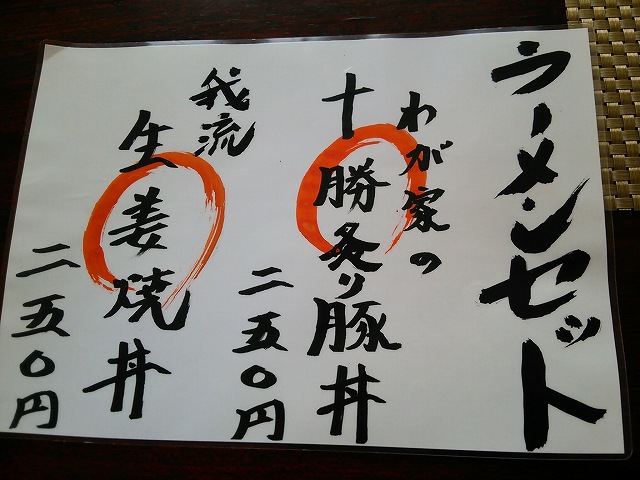 ラーメンセット
わが家の
十勝炙り豚丼
二五〇円
我流
生姜焼丼
二五〇円